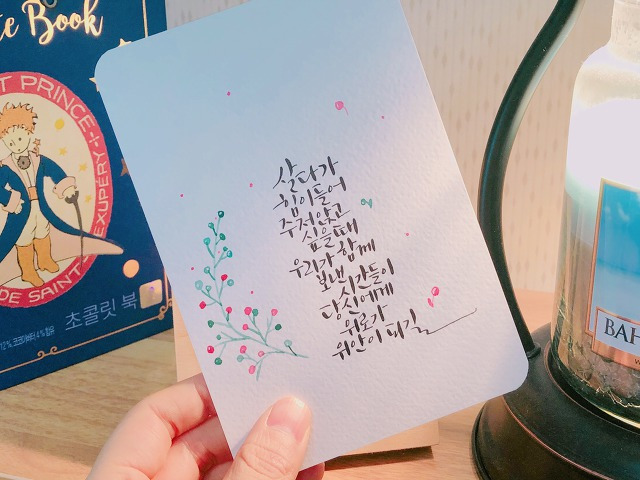 te Book
T PRINCE
DE SAINT-EXUPÉRY
초콜릿 북
살다가
힘이들어
주저앉고
싶을때
우리가 함께
보낸시간들이
당신에게
위로가
위안이 되길
BAH